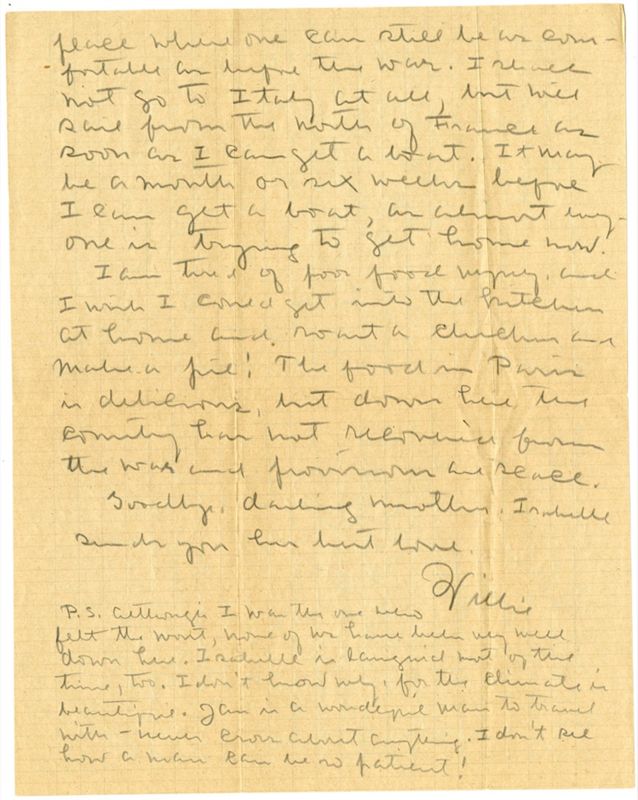 place where one can still be as com-
fortable as before the war. I shall
not go to Italy at all, but will
sail from the north of France as
soon as I can get a boat. It may
be a month or six weeks before
I can get a boat, as almost every-
one is trying to get home now.
I am tired of poor food myself, and
I wish I could get into the kitchen
at home and roast a chicken and
make a pie! The food in Paris
is delicious, but down here the
country has not recovered from
the war and provisions are scarce.
Goodbye, darling mother. Isabelle
sends you her best love.
Willie
P.S. Although I was the one who
felt the worst, none of us have been very well
down here. Isabelle is languid most of the
time, too. I don't know why, for the climate is
beautiful. Jan is a wonderful man to travel
with - never cross about anything. I don't see
how a man can be so patient!